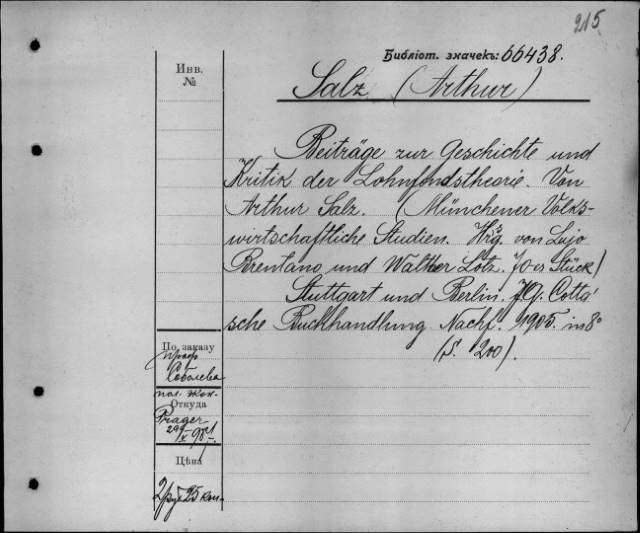 215
Библіот. значекъ: 66438.
Инв.
№
Salz (Arthur)
Beiträge zur Geschichte und
Kritik der Lohnfondstheorie. Von
Arthur Salz. (Münchener Volks-
wirtschaftliche Studien. Hrsg. von Lujo
Brentano und Walther Lotz. 70es Stück)
Stuttgart und Berlin. J.G. Cotta'
sche Buchhandlung Nachf. 1905. in 8°
(S. 200).
По заказу
проф
Соболева
пол. экон.
Откуда
Prager
Цѣна
2 руб 25 коп.